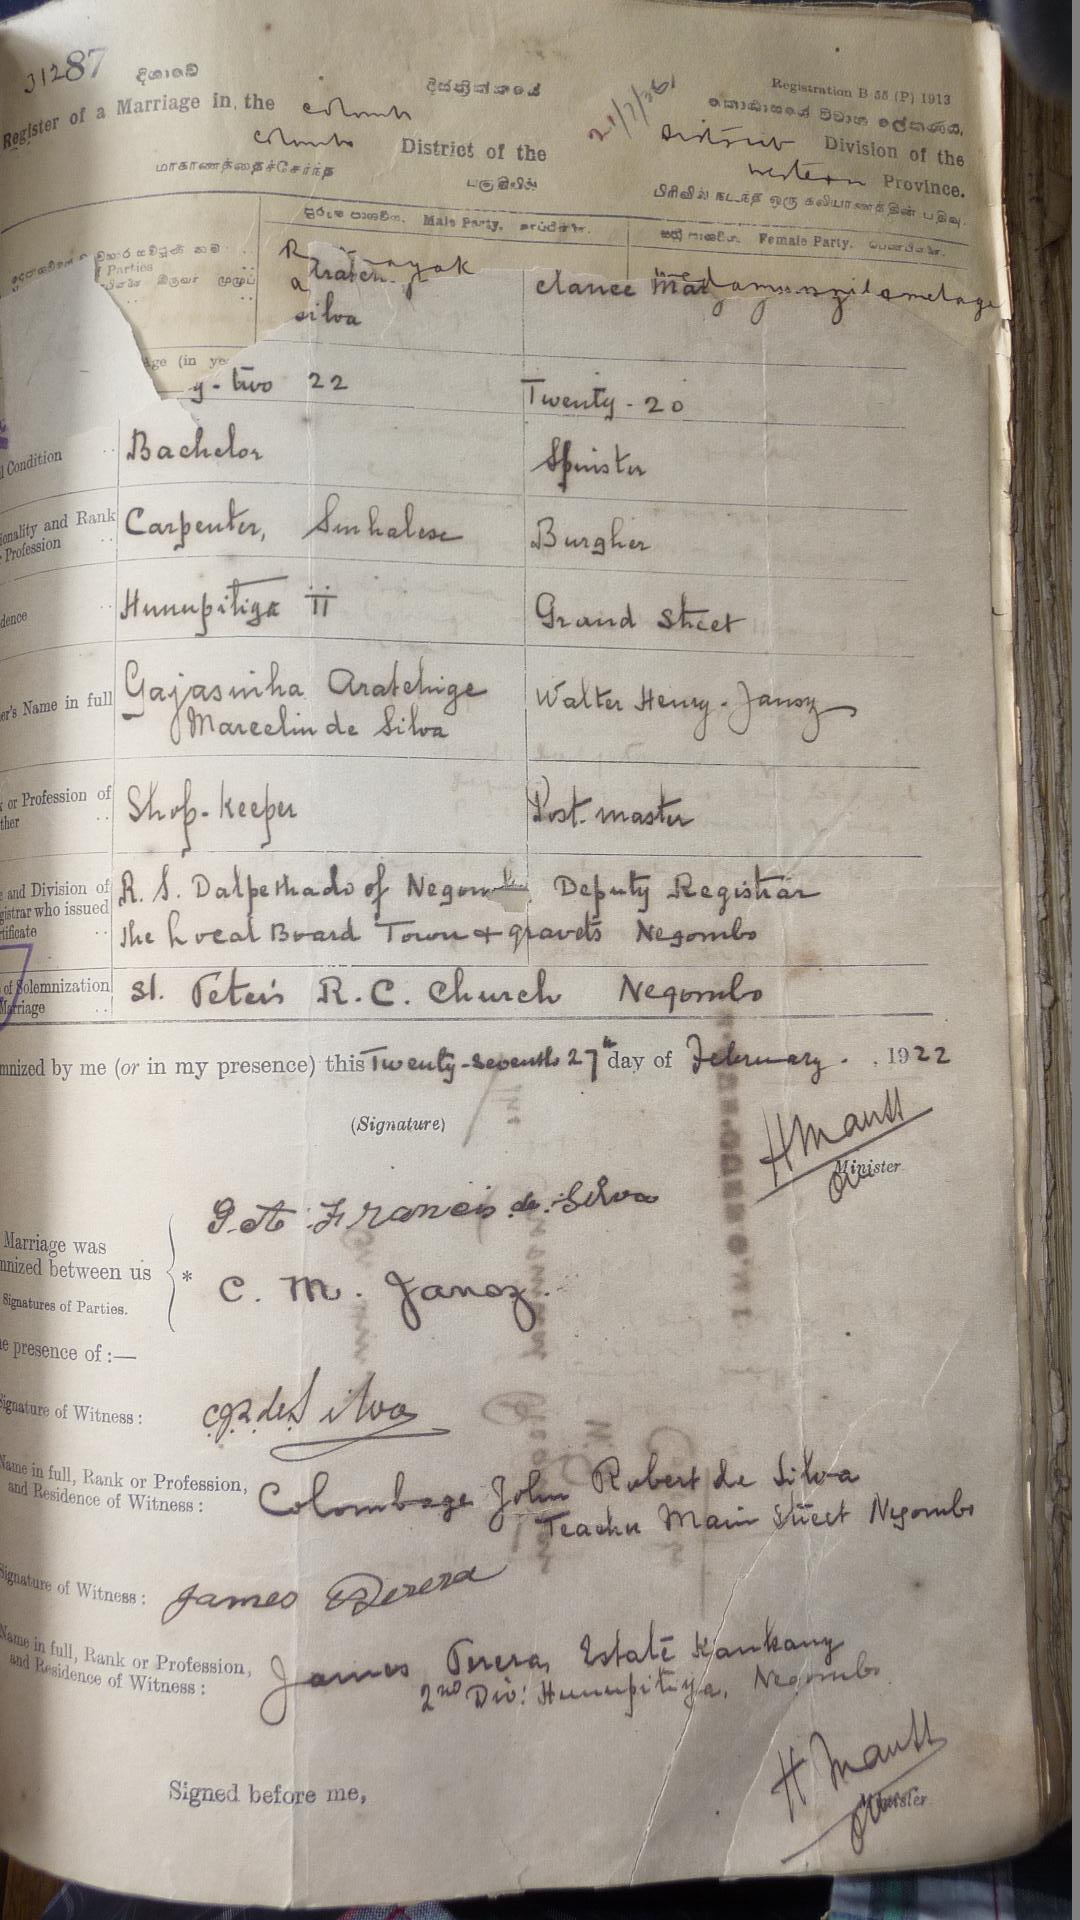 31287
දිශාවේ
දිස්ත්‍රික්කයේ
21/7/36
Registration B 55 (P) 1913
Register of a Marriage in the Colombo
Colombo District of the
District Division of the
Western Province.
மாகாணத்தைச்சேர்ந்த
பகுதியில்
பிரிவில் நடந்த ஒரு கலியாணத்தின் பதிவு.
Male Party.
Female Party.
Parties
aratchige
silva
clanee
Age (in ye
y-two 22
Twenty - 20
l Condition
Bachelor
Spinster
ionality and Rank
Profession
Carpenter, Sinhalese
Burgher
dence
Hunupitiya II
Grand Street
er's Name in full
Gajasinha Aratchige
Marcelin de Silva
Walter Henry Jansz
or Profession of
ther
Shop-keeper
Post master
and Division of
gistrar who issued
tificate
R. S. Dalpethado of Negombo Deputy Registrar
the Local Board Town & gravets Negombo
of Solemnization
Marriage
St. Peter's R. C. Church Negombo
mnized by me (or in my presence) this Twenty-seventh 27th day of February. 1922
(Signature)
Minister
Marriage was
mnized between us
Signatures of Parties.
*
G. A. Francis de Silva
C. M. Jansz.
e presence of :—
Signature of Witness :
C J R de Silva
Name in full, Rank or Profession,
and Residence of Witness :
Colombage John Robert de Silva
Teacher Main Street Negombo
Signature of Witness :
James Perera
Name in full, Rank or Profession,
and Residence of Witness :
James Perera, Estate Kankany
2nd Div: Hunupitiya, Negombo
Signed before me,
Minister